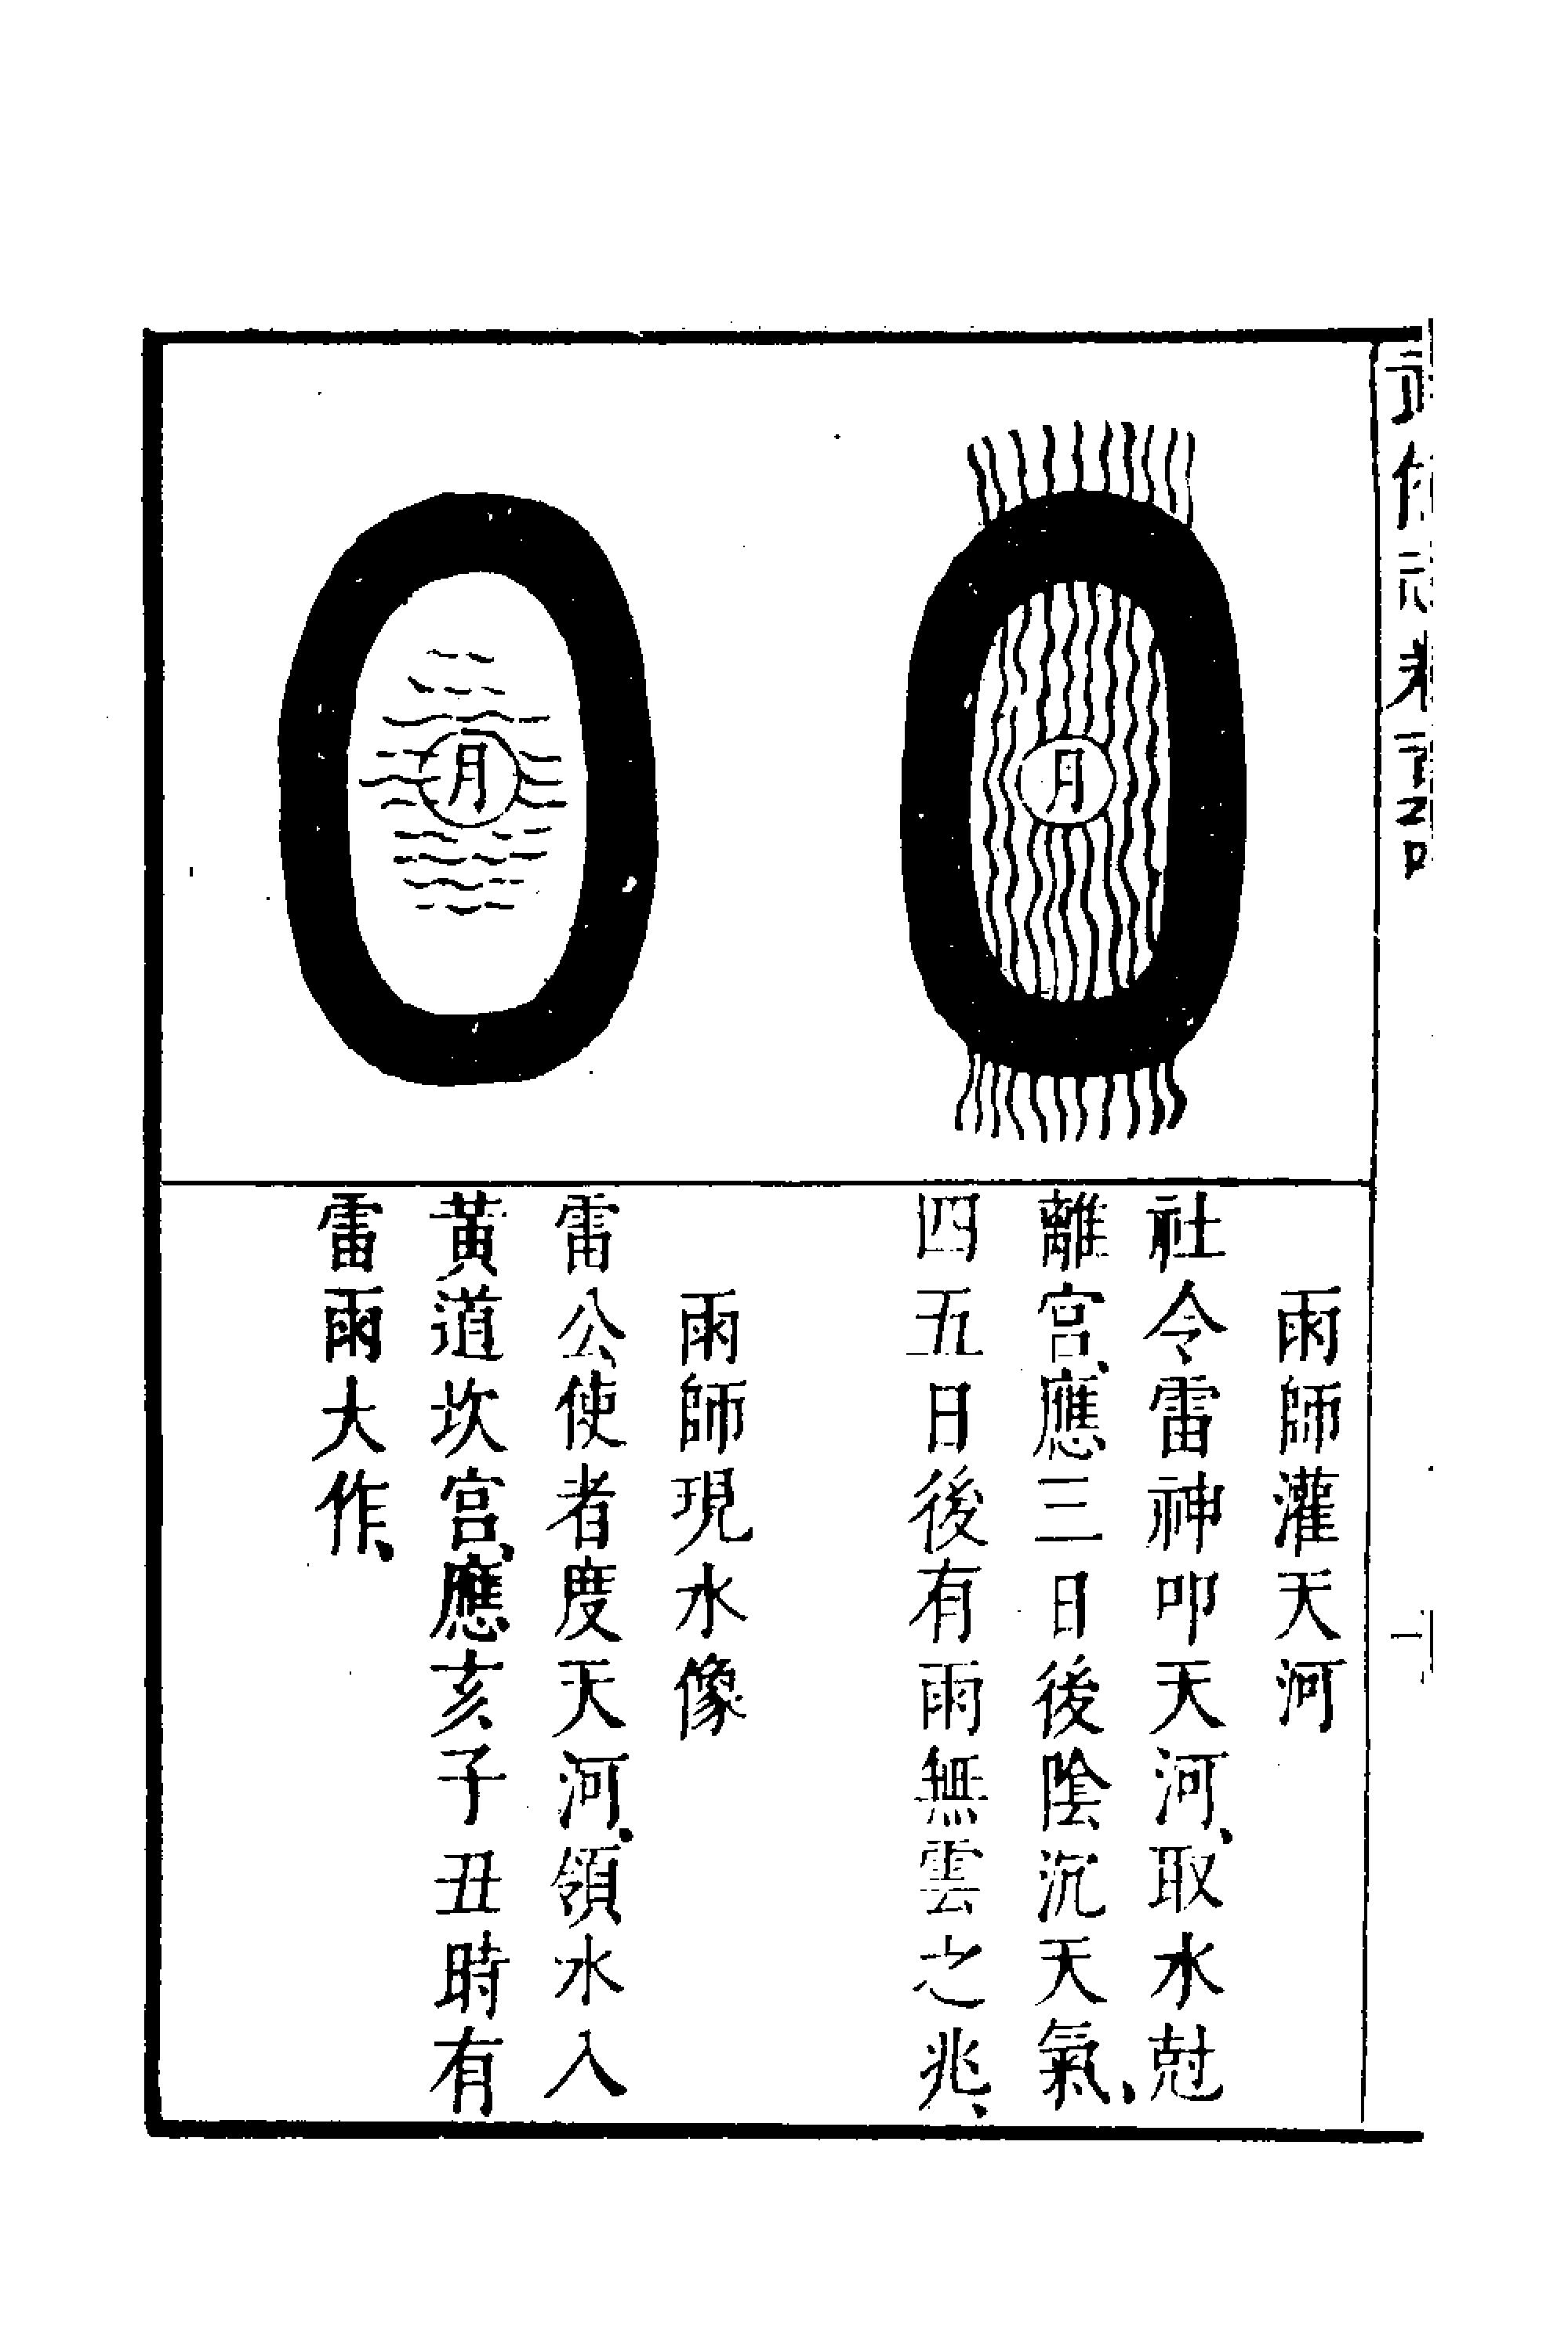 月
月
雨師灌天河
社令雷神叩天河、取水尅
離宮、應三日後陰沉天氣、
四五日後有雨無雲之兆、
雨師現水像
雷公使者度天河、領水入
黃道坎宮、應亥子丑時有
雷雨大作、